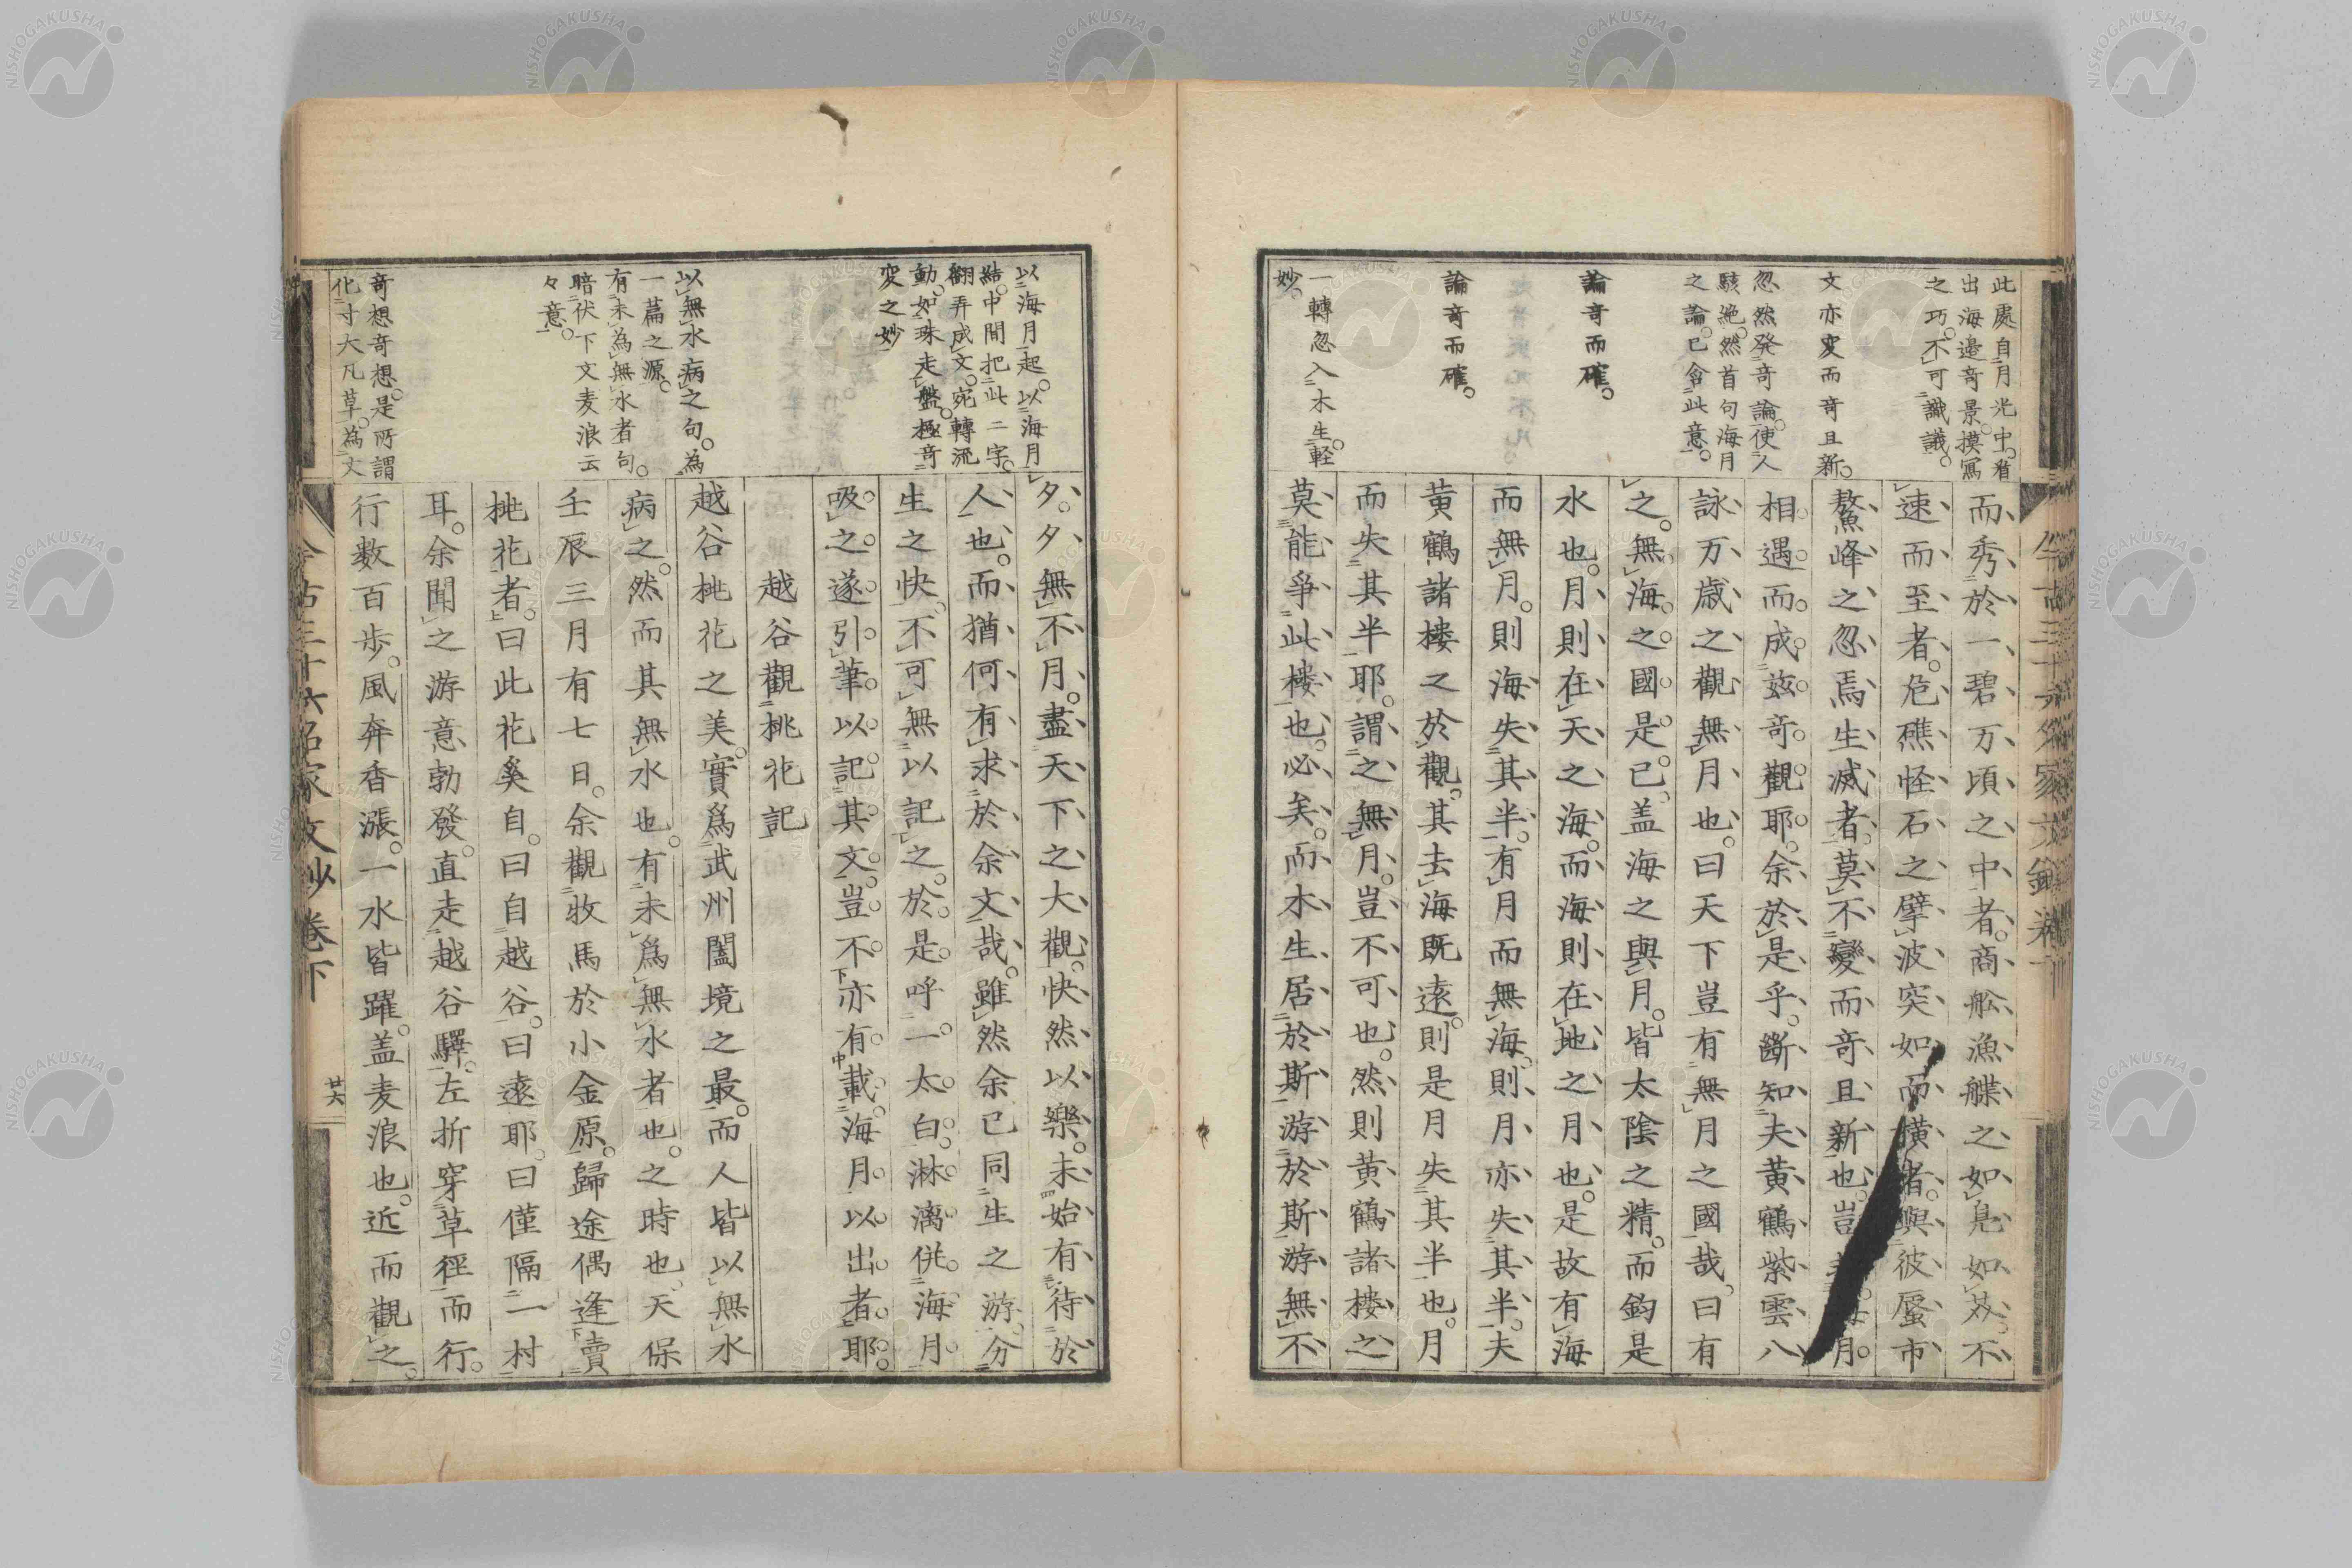 此處自月光中。看
出海邉奇景。摸寫
之巧。不可識議。
文亦変而奇且新。
忽然発奇論。使人
駭絶。然首句海月
之論。已含此意。
論奇而確。
論奇而確。
一轉忽入木生。軽
妙。
而秀於一碧万頃之中者。商舩漁艓之如鳧如
速而至者。危礁怪石之擘波突如而橫者。與彼蜃市
鰲峰之忽焉生滅者。莫不變而奇且新也。豈月。
相遇。而成玆奇觀耶。余於是乎。斷知夫黃鶴紫雲八
詠万歳之觀無月也。曰天下豈有無月之國哉。曰有
之。無海之國是已。盖海之與月。皆太陰之精。而鈞是
水也。月則在天之海。而海則在地之月也。是故有海
而無月。則海失其半。有月而無海。則月亦失其半。夫
黃鶴諸楼之於觀。其去海既遠。則是月失其半也。月
而失其半耶。謂之無月。豈不可也。然則黃鶴諸樓之
莫能爭此楼也。必矣。而木生居於斯游於斯游無不
以海月起。以海月
結。中間把此二字。
翻弄成文。宛轉流
動。如珠走盤。極奇
変之妙
以無水病之句。為
一篇之源。
有未為無水者句。
暗伏下文麦浪云
々意。
奇想奇想。是所謂
化寸大凡草。為丈
夕。夕無不月。盡天下之大觀。快然以樂。未始有待於
人也。而猶何有求於余文哉。雖然余已同生之游。分
生之快。不可無以記之。於是呼一太白。淋漓併海月
吸之。遂引筆以記其文。豈不亦有載海月以出者耶。
越谷觀桃花記
越谷桃花之美。實爲武州闔境之最。而人皆以無水
病之。然而其無水也。有未爲無水者也。之時也。天保
壬辰三月有七日。余觀牧馬於小金原。歸途偶逢賣
桃花者。曰此花奚自。曰自越谷。曰遠耶。曰僅隔一村
耳。余聞之游意勃發。直走越谷驛。左折穿草徑而行。
行数百歩。風奔香漲。一水皆躍。盖麦浪也。近而觀之。
今古三十六名家文抄卷下
廿六